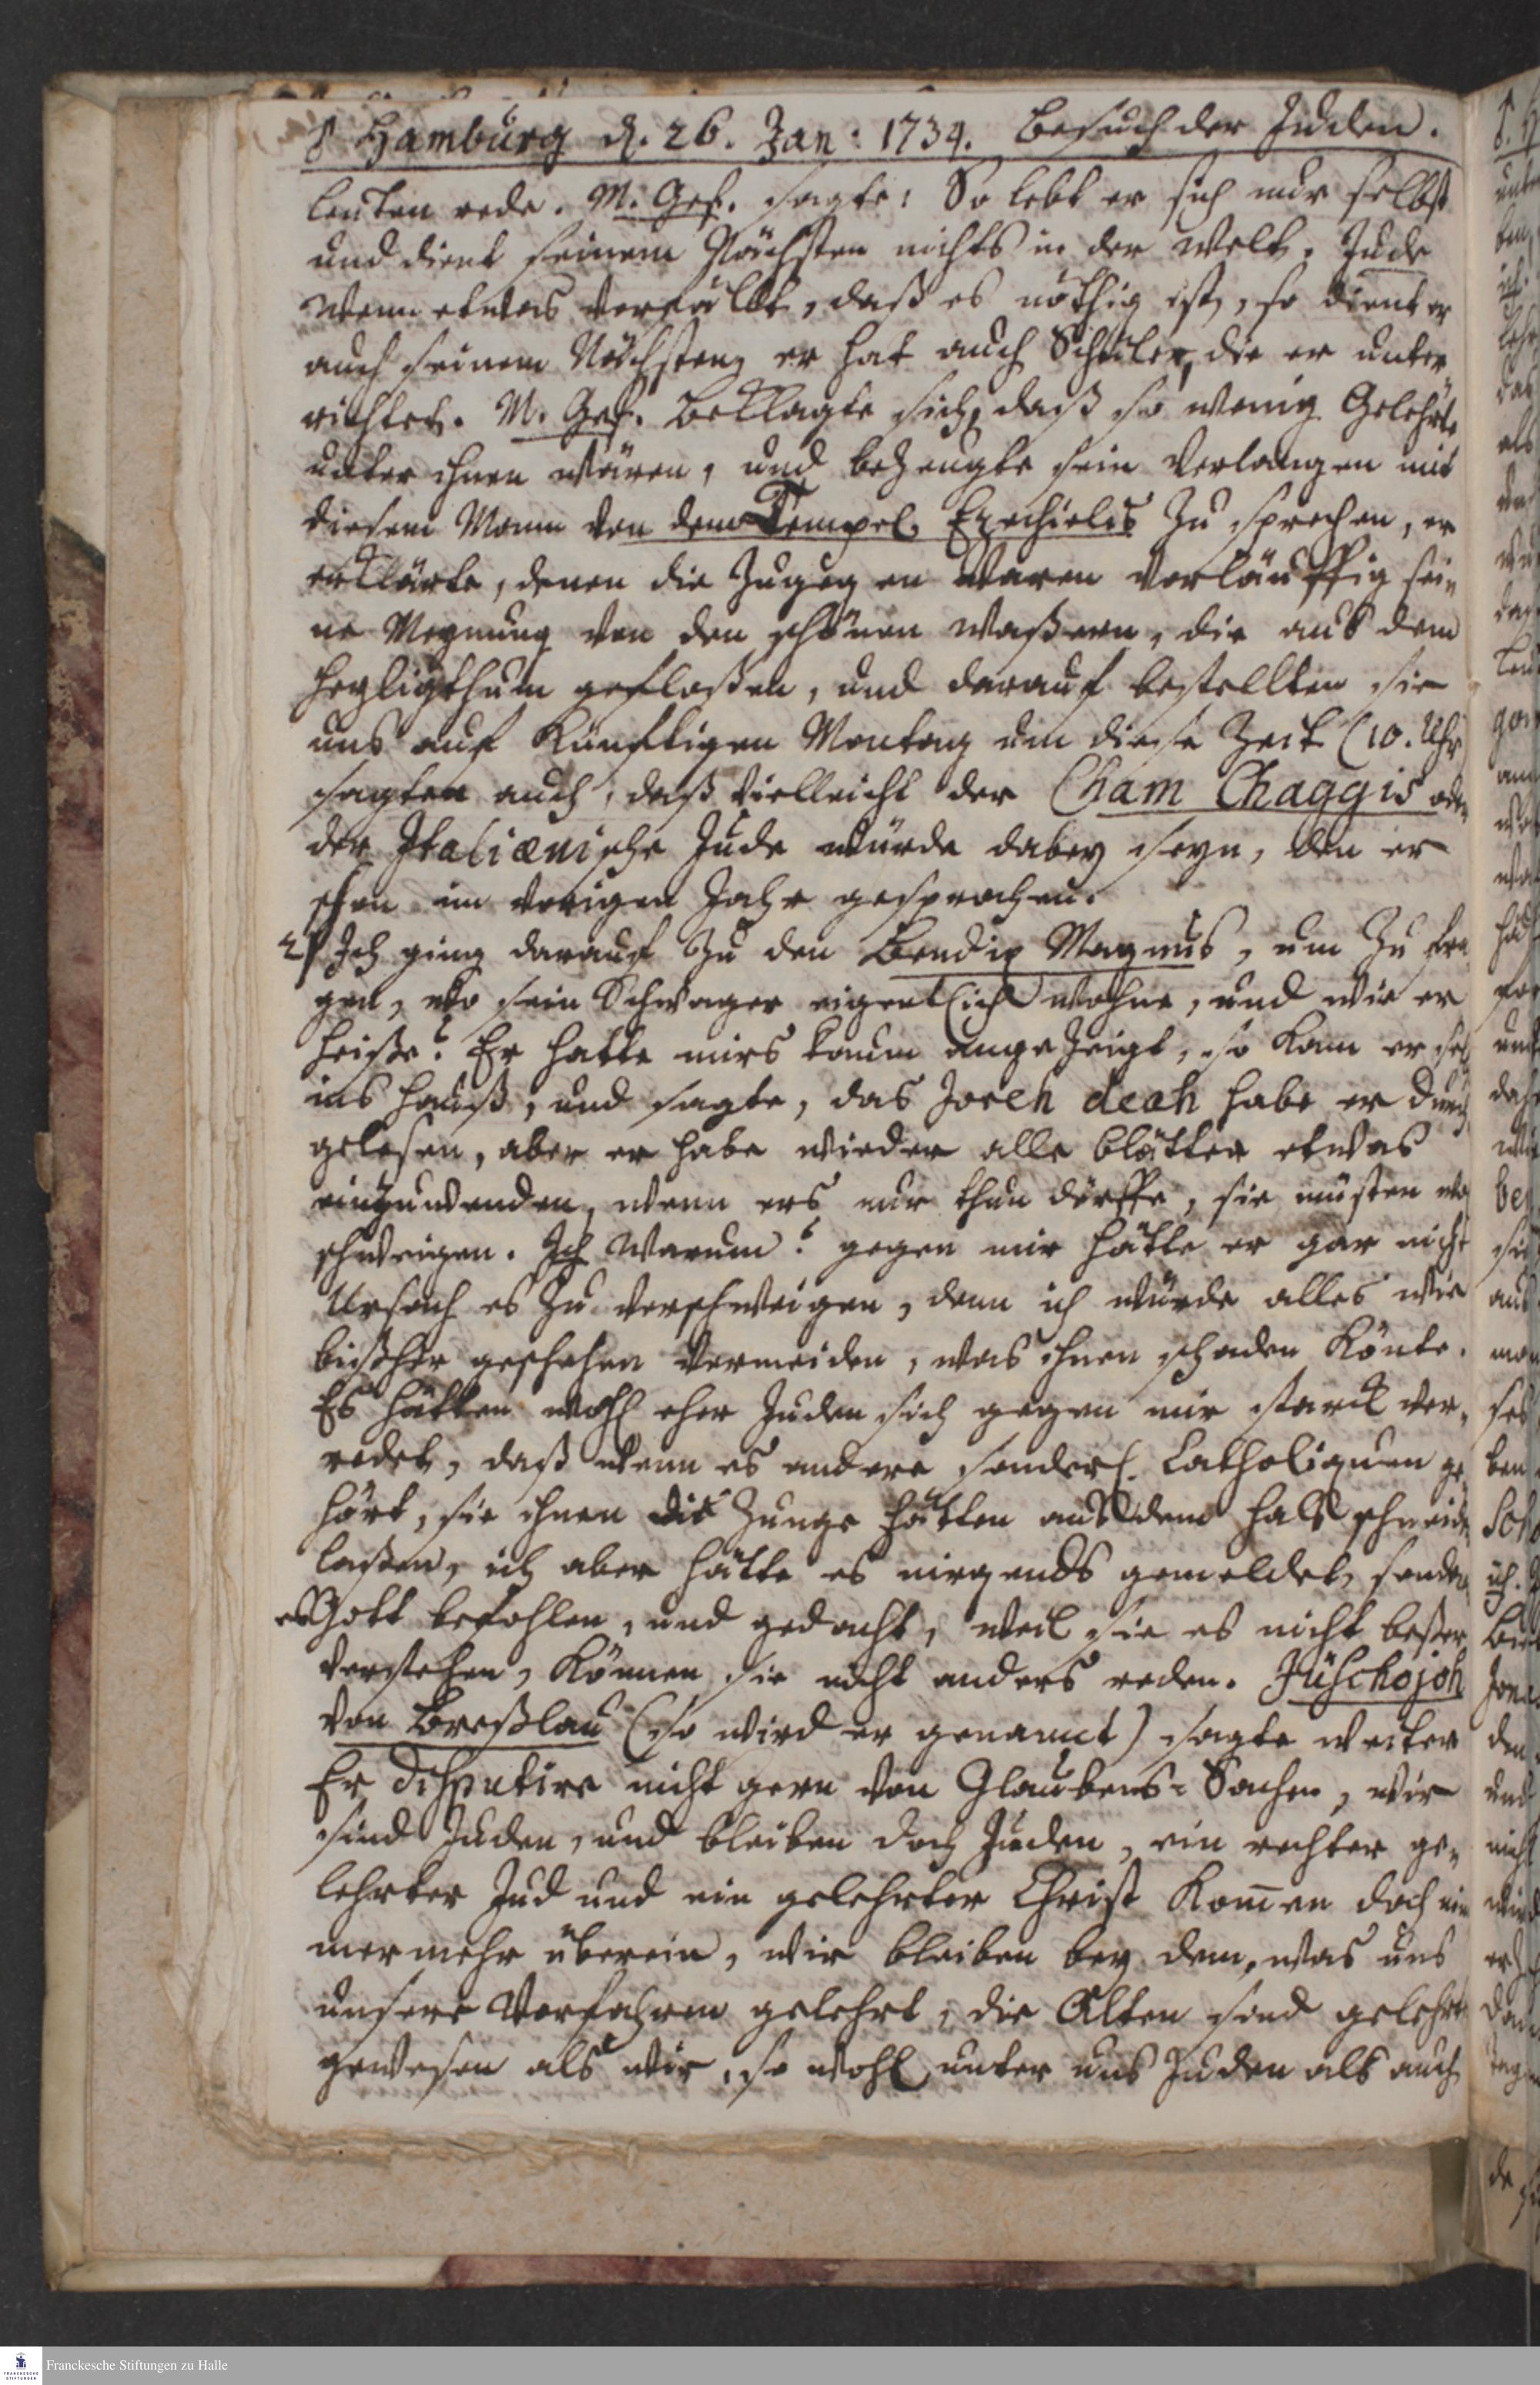 8 Hamburg d. 26. Jan: 1734. Besuch der Juden.
leuten rede. M. Gef. sagte: So lebt er sich nur selbst
und dient seinem Nächsten nichts in der Welt. Jude
Wenn etwas vorfällt, daß es nöthig ist, so dient er
auch seinem Nächsten, er hat auch Schüler, die er unter
richtet. M. Gef. beklagte sich, daß so wenig Gelehrte
unter ihnen wären, und bezeugte sein Verlangen mit
diesem Mann von dem Tempel Ezechielis zu sprechen, er
erklärte, denen die zugegen waren vorläuffig sei
ne Meynung von den schönen Waßern, die aus dem
Heyligthum gefloßen, und darauf bestellten sie
uns auf künfftigen Montag um diese Zeit (10. Uhr)
sagten auch, daß vielleicht der Cham Chaggis oder
der Italiænische Jude würde dabey seyn, den er
schon im vorigen Jahr gesprochen.
2) Ich ging darauf zu den Bendix Magnus, um zu fra
gen, wo sein Schwager eigentlich wohne, und wie er
heiße? Er hatte mirs kaum angezeigt, so kam er selb
ins Hauß, und sagte, das Joreh deah habe er durch
gelesen, aber er habe wieder alle blätter etwas
einzuwenden, wenn ers nur thun dörffe, sie müsten wo
schweigen. Ich Warum? gegen mir hätte er gar nicht
Ursach es zu verschweigen, denn ich würde alles wie
bißher geschehen vermeiden, was ihnen schaden könte.
Es hätten wohl eher Juden sich gegen mir starck ver,
redet, daß wenn es andere sonderl. Catholiquen ge
hört, sie ihnen die Zunge hätten aus dem Halß schneiden
laßen, ich aber hätte es nirgends gemeldet, sondern
es Gott befohlen, und gedacht, weil sie es nicht beßer
verstehen, können sie nicht anders reden. Jüschojoh
von Breßlau (so wird er genannt) sagte weiter
Er disputire nicht gern von Glaubens-Sachen, wir
sind Juden, und bleiben doch Juden, ein rechter ge,
lehrter Jud und ein gelehrter Christ kom̄en doch nim
mermehr überein, wir bleiben bey dem, was uns
unsere Vorfahren gelehrt, die Alten sind gelehrter
gewesen als wir, so wohl unter uns Juden als auch
Franckesche Stiftungen zu Halle